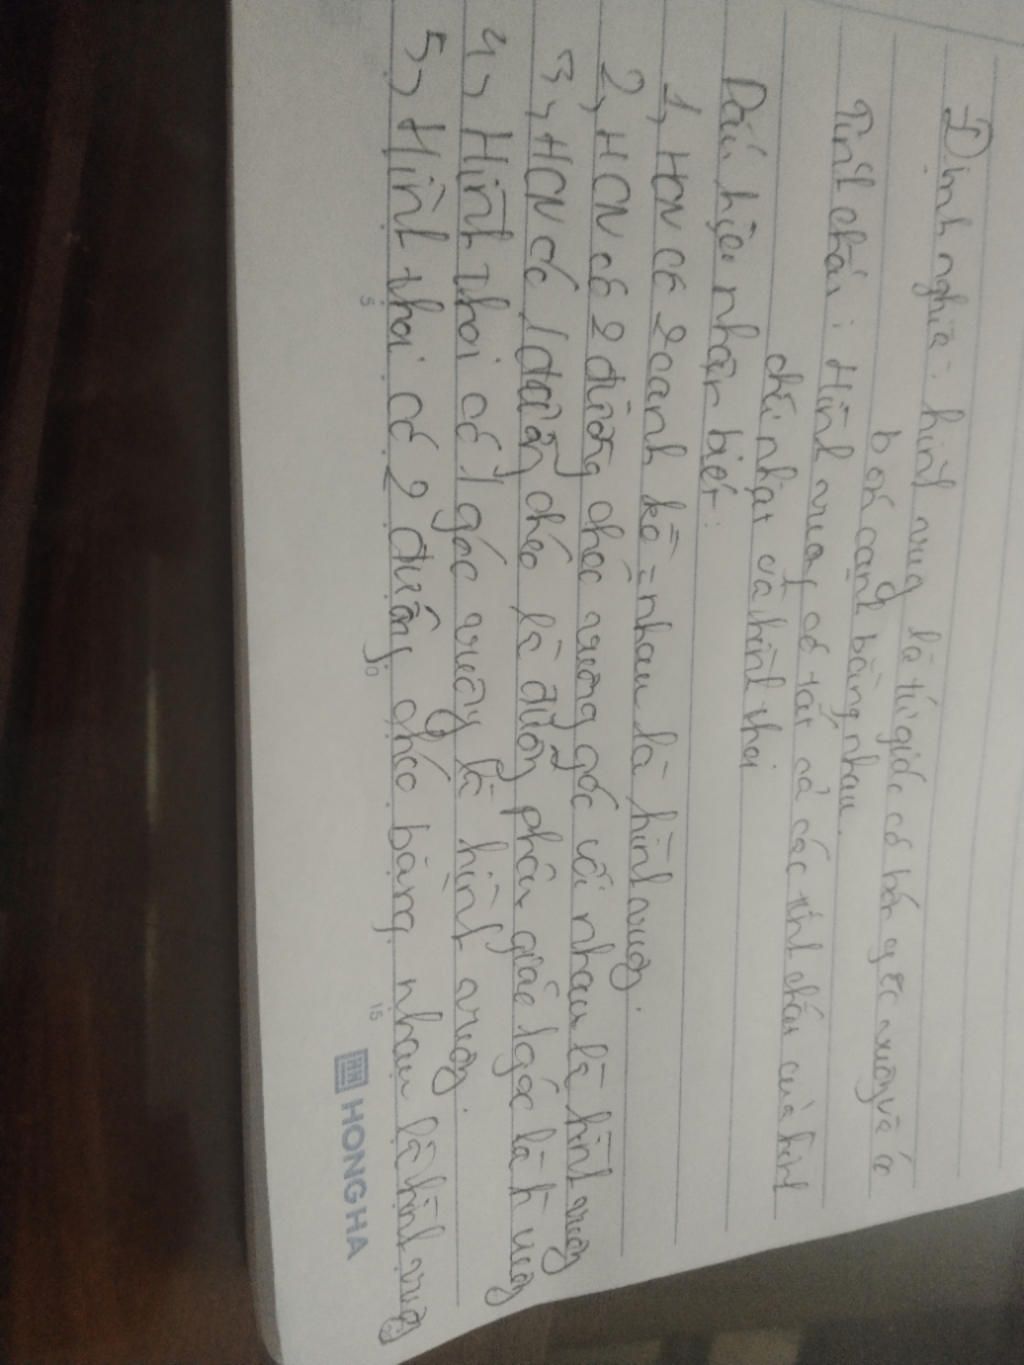 Định nghĩa: hình vuông là tứ giác có bốn góc vuông và có
bốn cạnh bằng nhau.
Tính chất: Hình vuông có tất cả các tính chất của hình
chữ nhật và hình thoi
Dấu hiệu nhận biết:
1, HCN có 2 cạnh kề = nhau là hình vuông.
2, HCN có 2 đường chéo vuông góc với nhau là hình vuông
3, HCN có 1 đường chéo là đường phân giác 1 góc là h vuông
4, Hình thoi có 1 góc vuông là hình vuông.
5, Hình thoi có 2 đường chéo bằng nhau là hình vuông
5 10 15
HONG HA